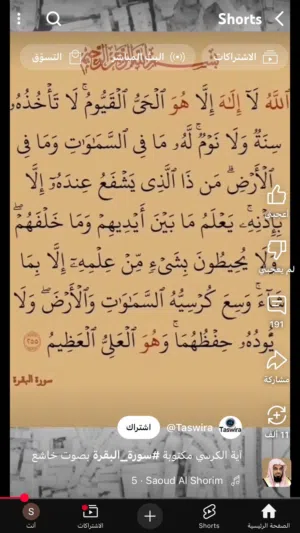 Shorts
الاشتراكات
البث المباشر
التسوّق
ٱللَّهُ لَآ إِلَـٰهَ إِلَّا هُوَ ٱلْحَىُّ ٱلْقَيُّومُ ۚ لَا تَأْخُذُهُۥ
سِنَةٌ وَلَا نَوْمٌ ۚ لَّهُۥ مَا فِى ٱلسَّمَـٰوَٰتِ وَمَا فِى
ٱلْأَرْضِ ۗ مَن ذَا ٱلَّذِى يَشْفَعُ عِندَهُۥٓ إِلَّا
بِإِذْنِهِۦ ۚ يَعْلَمُ مَا بَيْنَ أَيْدِيهِمْ وَمَا خَلْفَهُمْ ۖ
وَلَا يُحِيطُونَ بِشَىْءٍ مِّنْ عِلْمِهِۦٓ إِلَّا بِمَا
شَآءَ ۚ وَسِعَ كُرْسِيُّهُ ٱلسَّمَـٰوَٰتِ وَٱلْأَرْضَ ۖ وَلَا
يَـُٔودُهُۥ حِفْظُهُمَا ۚ وَهُوَ ٱلْعَلِىُّ ٱلْعَظِيمُ ٢٥٥
سورة البقرة
أعجبني
لم يعجبني
191
مشاركة
11 ألف
Taswira
@Taswira
اشتراك
آية الكرسي مكتوبة #سورة_البقرة بصوت خاشع
Saoud Al Shorim · 5
الصفحة الرئيسية
Shorts
الاشتراكات
S
أنت